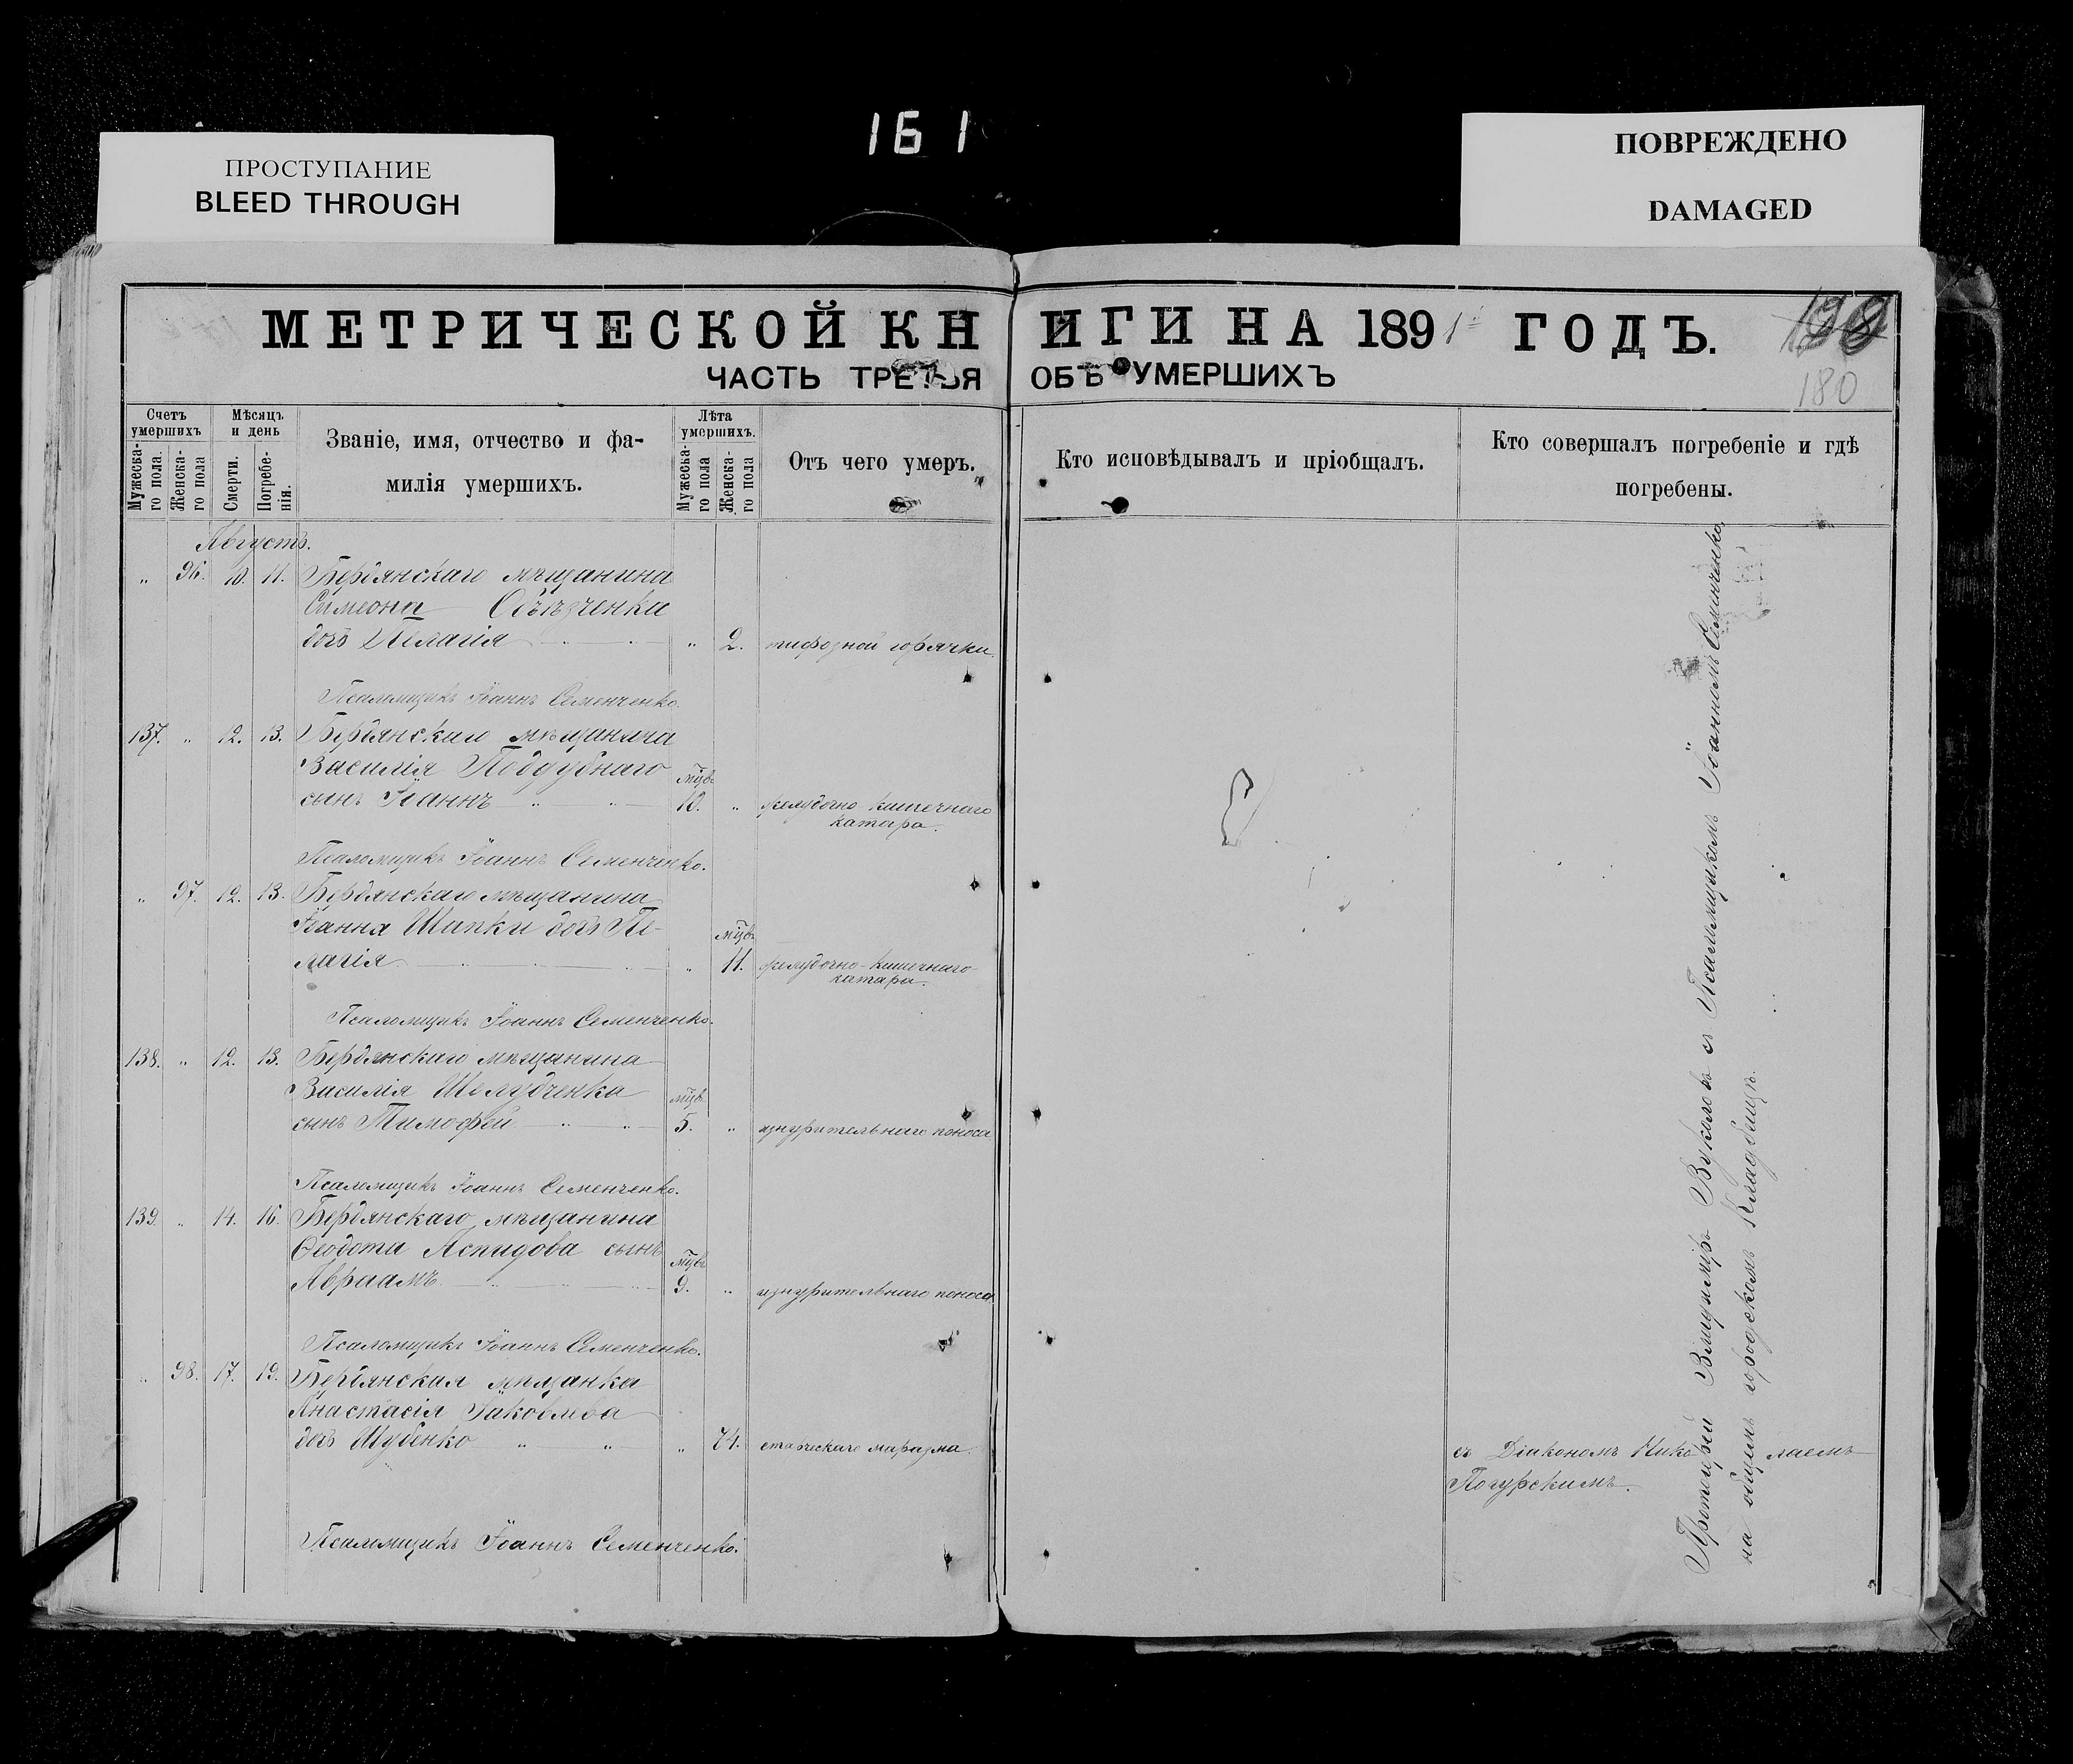 161
ПРОСТУПАНИЕ
BLEED THROUGH
ПОВРЕЖДЕНО
DAMAGED
МЕТРИЧЕСКОЙ КНИГИ НА 1891 ГОДЪ.
ЧАСТЬ ТРЕТЬЯ ОБЪ УМЕРШИХЪ
180
Счетъ умершихъ
Мужеска-го пола.
Женска-го пола
Мѣсяцъ и день
Смерти.
Погребе-нія.
Званіе, имя, отчество и фа-
милія умершихъ.
Лѣта умершихъ.
Мужеска-го пола
Женска-го пола
Отъ чего умеръ.
Кто исповѣдывалъ и пріобщалъ.
Кто совершалъ погребеніе и гдѣ
погребены.
Августъ.
„ 96. 10. 11. Бердянскаго мѣщанина
Симеона Объѣзченка
дочь Пелагія „ 2. тифозной горячки.
Псаломщикъ Іоаннъ Семенченко.
137. „ 12. 13. Бердянскаго мѣщанина
Василія Поддубнаго мцвъ
сынъ Іоаннъ 10. „ желудочно кишечнаго
катара.
Псаломщикъ Іоаннъ Семенченко.
„ 97. 12. 13. Бердянскаго мѣщанина
Іоанна Шипки дочь Пе- мцвъ
лагія „ 11. желудочно-кишечнаго
катара.
Псаломщикъ Іоаннъ Семенченко.
138. „ 12. 13. Бердянскаго мѣщанина
Василія Шелудченка мцвъ
сынъ Тимофей 5. „ изнурительнаго поноса
Псаломщикъ Іоаннъ Семенченко.
139. „ 14. 16. Бердянскаго мѣщанина
Ѳеодота Аспидова сынъ мцвъ
Авраамъ 9. „ изнурительнаго поноса.
Псаломщикъ Іоаннъ Семенченко.
„ 98. 17. 19. Бердянская мѣщанка
Анастасія Іаковлева
дочь Шубенко „ 74. старческаго маразма.
съ Діакономъ Николаемъ
Погурскимъ.
Псаломщикъ Іоаннъ Семенченко.
Протоіерей Владиміръ Вуколовъ съ Псаломщикомъ Іоанномъ Семенченко,
на общемъ городскомъ кладбищѣ.